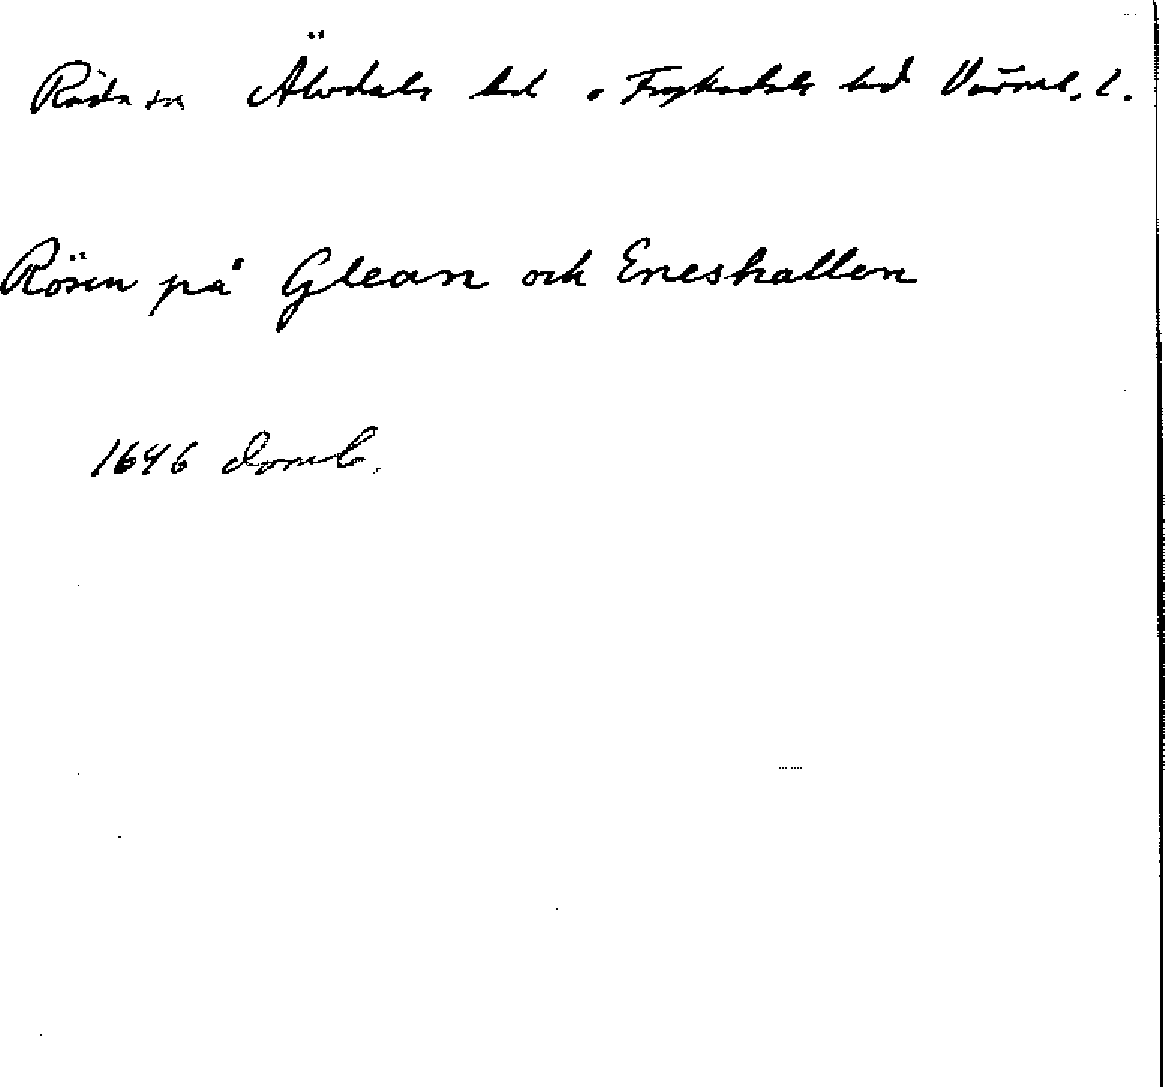 Råda sn Älvdals hd o Fryksdals hd Värml. l.
Rösen på Glean och Eneshallen
1646 domb.